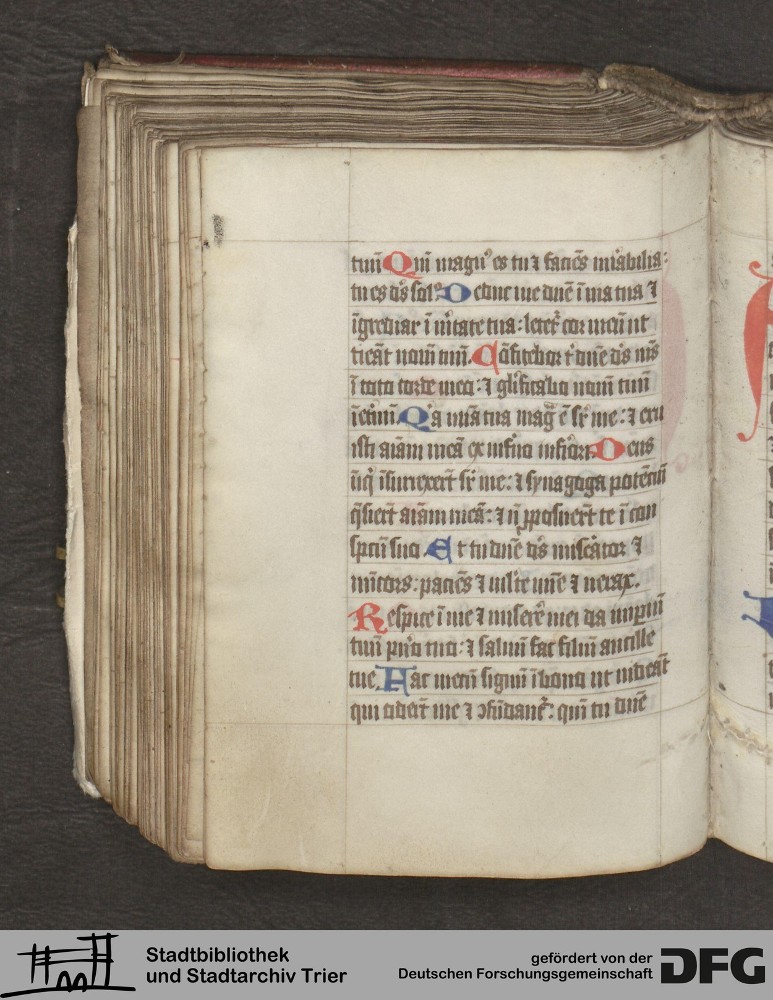 tuū Qm̄ magnꝰ es tu ⁊ faciēs mirabilia:
tu es dꝰs solꝰ. Deduc me dn̄e ī uia tua ⁊
īgrediar ī uitate tua: letet᷑ cor meū ut
timeāt nom̄ tuū. Cōfitebor t dn̄e ds ms
ī toto corde meo: ⁊ glificabo nom̄ tuū
īet̄nū. Qa mīa tua mag̃ ē sr̄ me: ⁊ eru
isti aīam meā ex inf̄no infiori. Deus
īiq̄ īsurrexert̄ sr̄ me: ⁊ synagoga potētiū
q̄siert̄ aīam meā: ⁊ n̄ ꝓposuert̄ te ī con
spcū suo. Et tu dn̄e ds miserator ⁊
mīcors: paciēs ⁊ mlte mīe ⁊ verax.
Respice ī me ⁊ misere᷑ mei da impiū
tuū puo tuo: ⁊ saluū fac filiū ancille
tue. Fac mecū signū ī bono ut videāt
qui oderūt me ⁊ ꝯfūdant᷑: qm̄ tu dn̄e
Stadtbibliothek
und Stadtarchiv Trier
gefördert von der
Deutschen Forschungsgemeinschaft
DFG